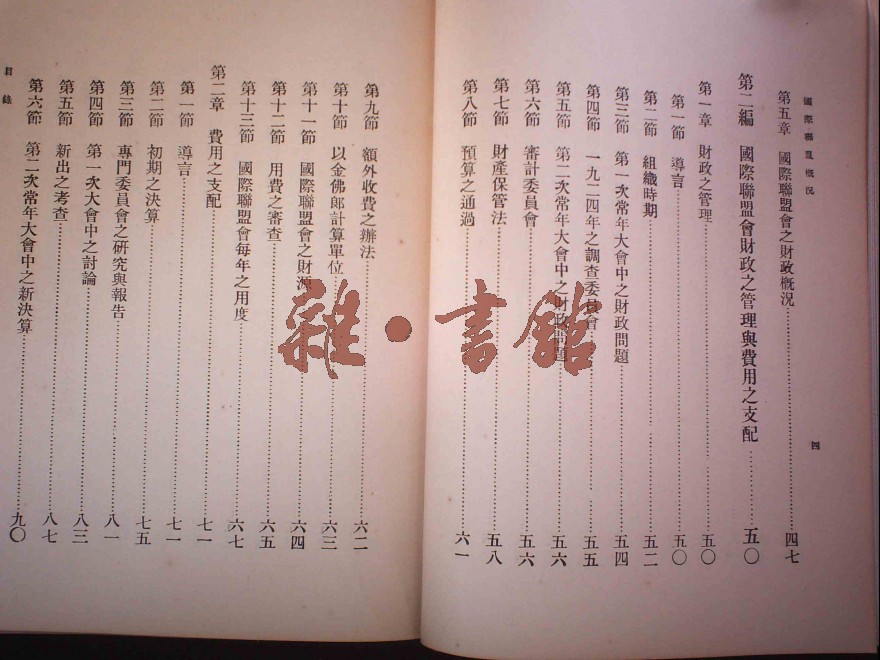 國際聯盟概況
四
第五章　國際聯盟會之財政概況……四七
第二編　國際聯盟會財政之管理與費用之支配……五〇
第一章　財政之管理……五〇
第一節　導言……五〇
第二節　組織時期……五二
第三節　第一次常年大會中之財政問題……五四
第四節　一九二四年之調查委員會……五五
第五節　第二次常年大會中之財政問題……五六
第六節　審計委員會……五六
第七節　財產保管法……五八
第八節　預算之通過……六一
第九節　額外收費之辦法……六二
第十節　以金佛郎計算單位……六三
第十一節　國際聯盟會之財源……六四
第十二節　用費之審查……六五
第十三節　國際聯盟會每年之用度……六七
第二章　費用之支配……七一
第一節　導言……七一
第二節　初期之決算……七五
第三節　專門委員會之研究與報告……八一
第四節　第一次大會中之討論……八三
第五節　新出之考查……八七
第六節　第二次常年大會中之新決算……九〇
目錄
雜·書館